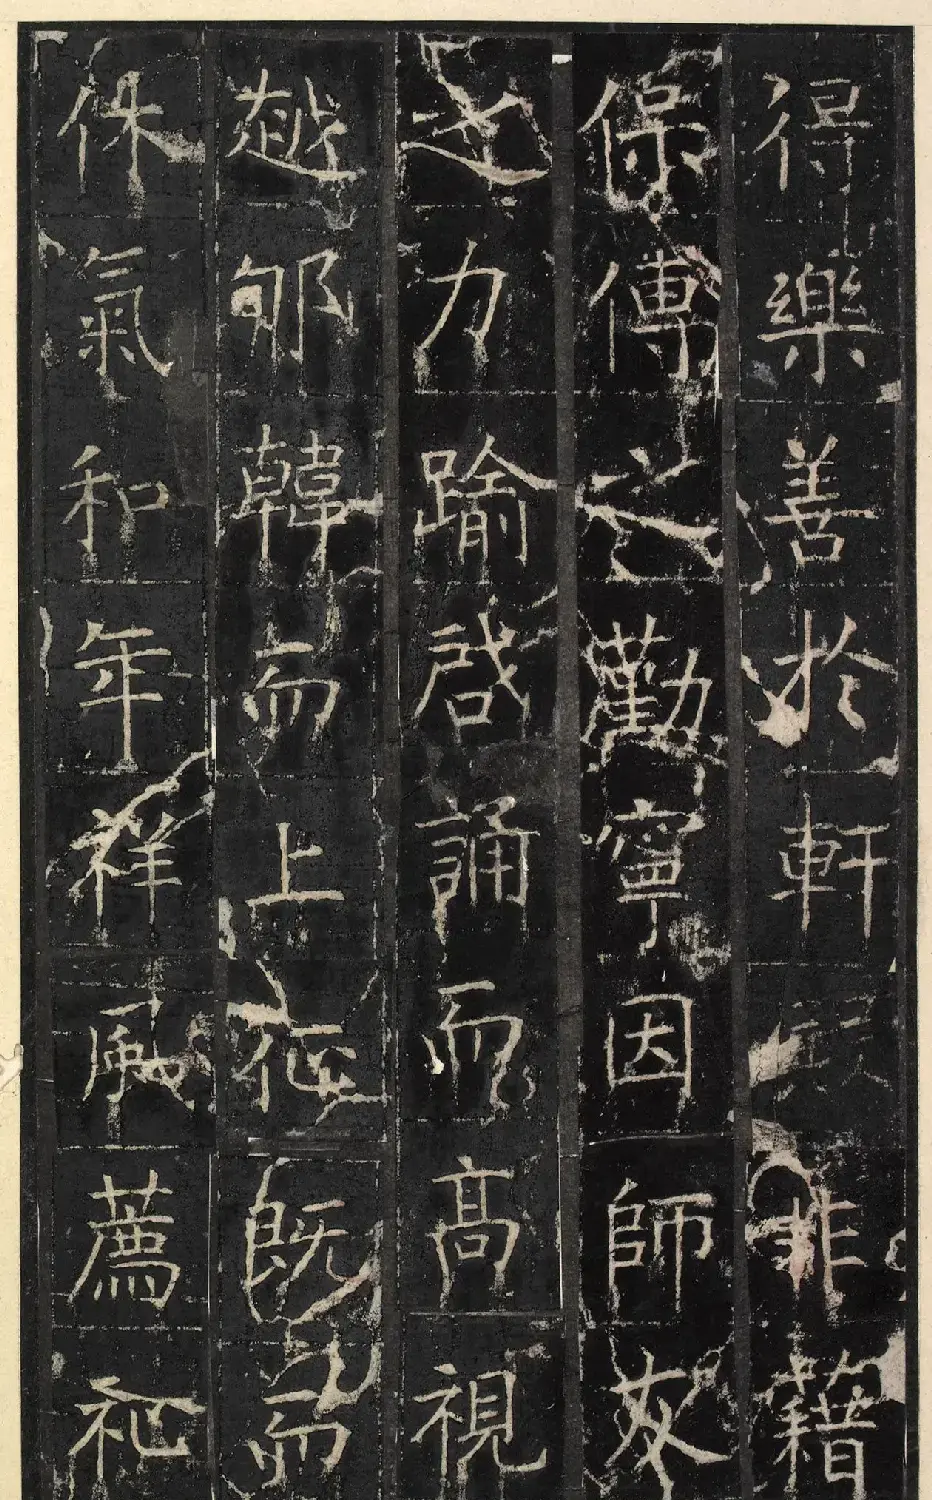 得樂善於軒非藉
保傅之勸寧因師友
之力踰啓誦而高視
越韓而上征既而
休氣和年祥風薦祉